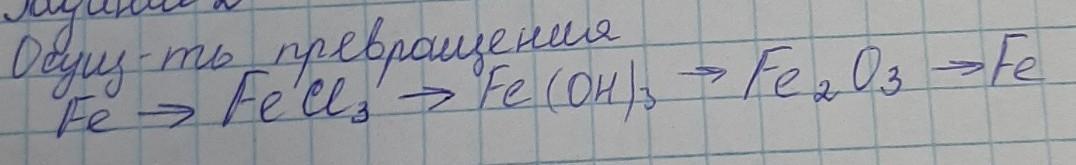 Задание 2
Осущ-ть превращения
Fe → FeCl₃ → Fe(OH)₃ → Fe₂O₃ → Fe